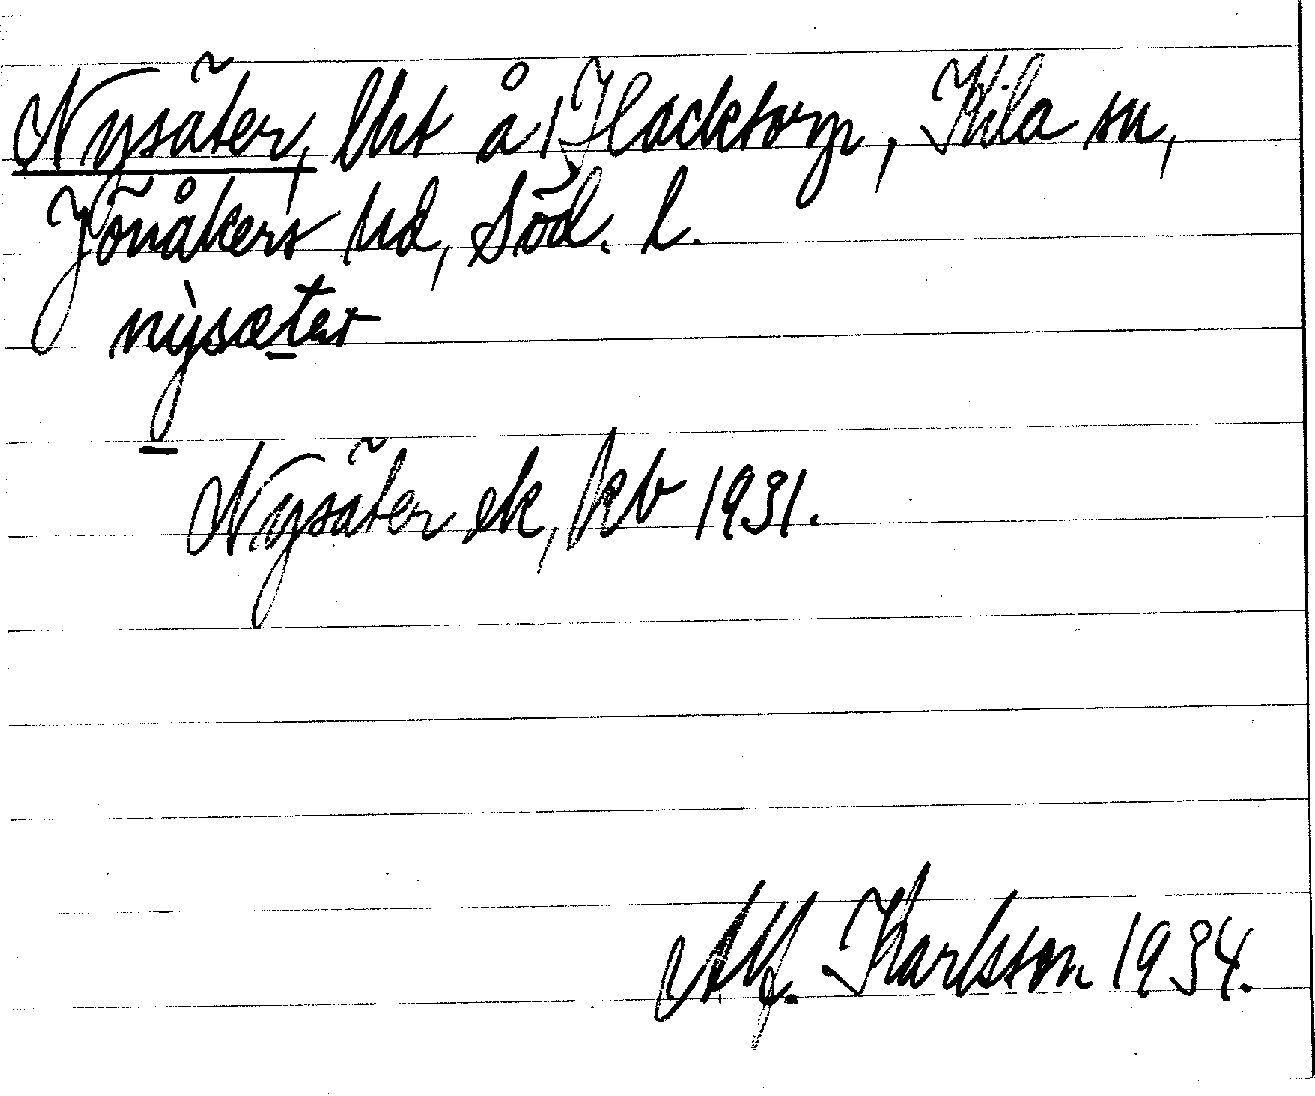 Nysäter, lht å Hacktorp, Kila sn,
Jönåkers hd, Söd. l.
nỳsæter
Nysäter ek, kb 1931.
Alf. Karlsson 1934.